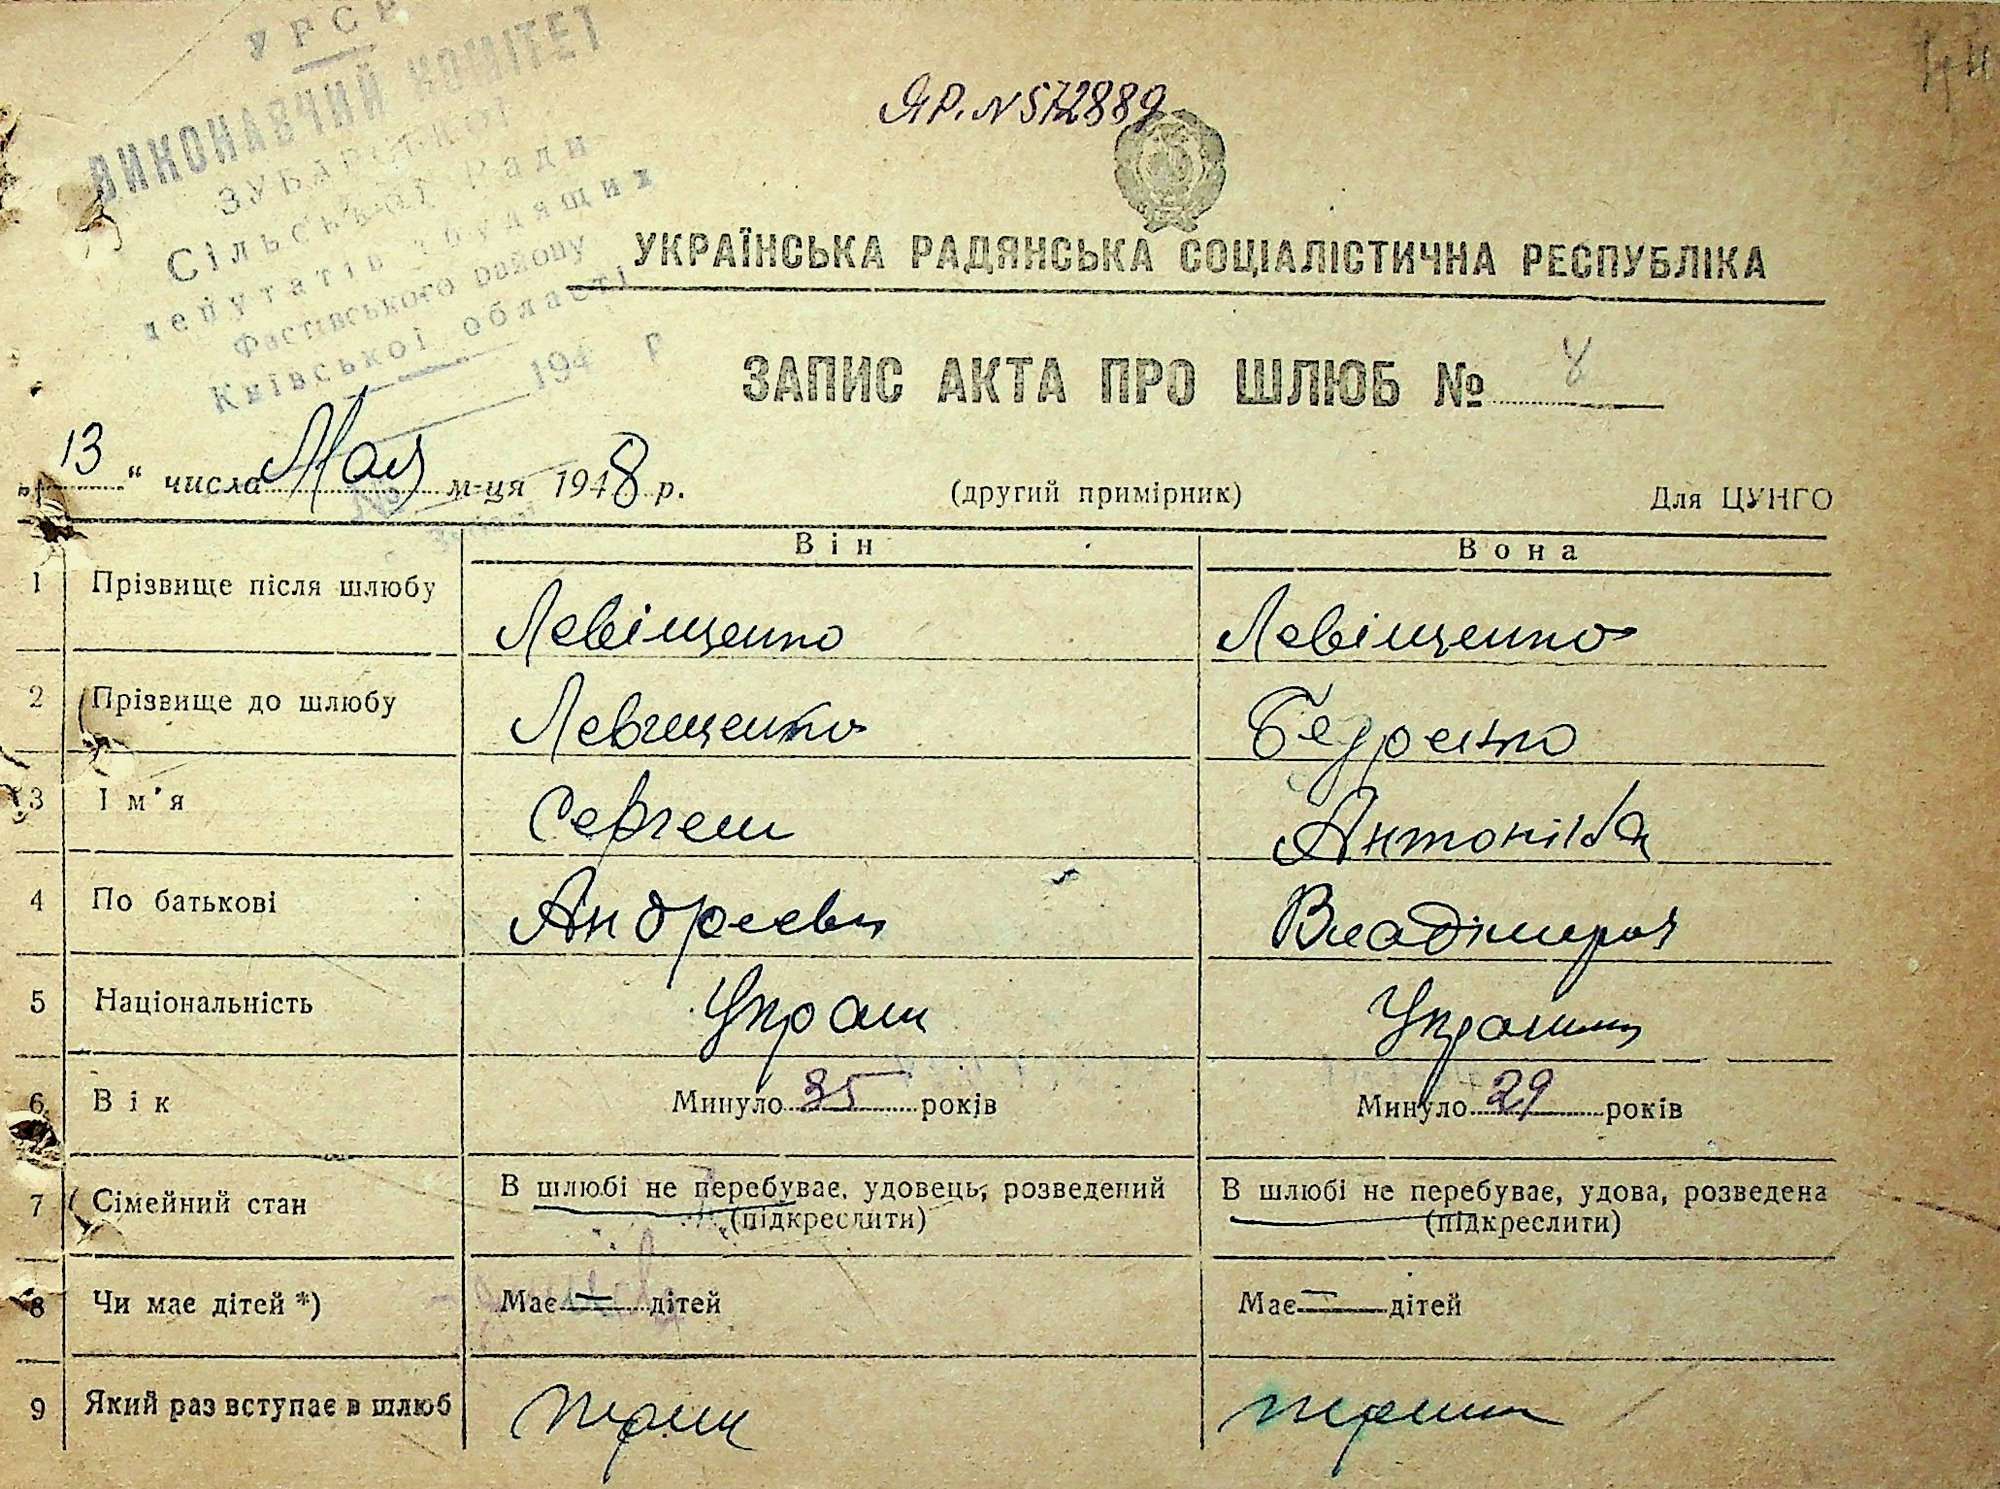 УРСР
ВИКОНАВЧИЙ КОМІТЕТ
Сільської Ради
депутатів трудящих
Фастівського району
Київської області
194 р
ЯР. N 572889
УКРАЇНСЬКА РАДЯНСЬКА СОЦІАЛІСТИЧНА РЕСПУБЛІКА
ЗАПИС АКТА ПРО ШЛЮБ № 8
„13“ числа Мая м-ця 1948 р. (другий примірник) Для ЦУНГО
Він Вона
1 Прізвище після шлюбу Левіщенко Левіщенко
2 Прізвище до шлюбу Левищенко Бедренко
3 Ім'я Сергеи Антоніна
4 По батькові Андреевич Владімиров
5 Національність Украін Украінка
6 Вік Минуло 35 років Минуло 29 років
7 Сімейний стан В шлюбі не перебуває, удовець, розведений В шлюбі не перебуває, удова, розведена
(підкреслити) (підкреслити)
8 Чи має дітей *) Має — дітей Має — дітей
9 Який раз вступає в шлюб